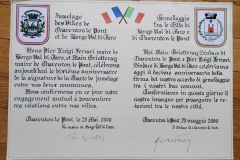 Jumelage
des Villes de
Charenton le Pont
et de Borgo Val di Taro
Nous Pier Luigi Ferrari maire
de Borgo Val di Taro, et Alain Griotteray
maire de Charenton le Pont, célébrons
aujourd'hui le dixième anniversaire
de la signature de la Charte de Jumelage
entre nos deux communes.
Nous confirmons en ce jour notre
engagement mutuel à poursuivre
les relations entre nos villes.
Charenton le Pont, le 20 Mai 2000
Le maire de Borgo Val di Taro
Gemellaggio
tra le Città di
Borgo Val di Taro e di
Charenton le Pont
Noi Alain Griotteray Sindaco di
Charenton le Pont e Pier Luigi Ferrari
Sindaco di Borgo Val di Taro celebriamo
oggi il decimo anniversario della
firma del nostro patto di gemellaggio
tra i nostri due comuni.
Confermiamo in questo giorno il
nostro impegno per proseguire le
relazioni tra le nostre città.
Charenton le Pont, 20 maggio 2000
Il Sindaco di Charenton le Pont